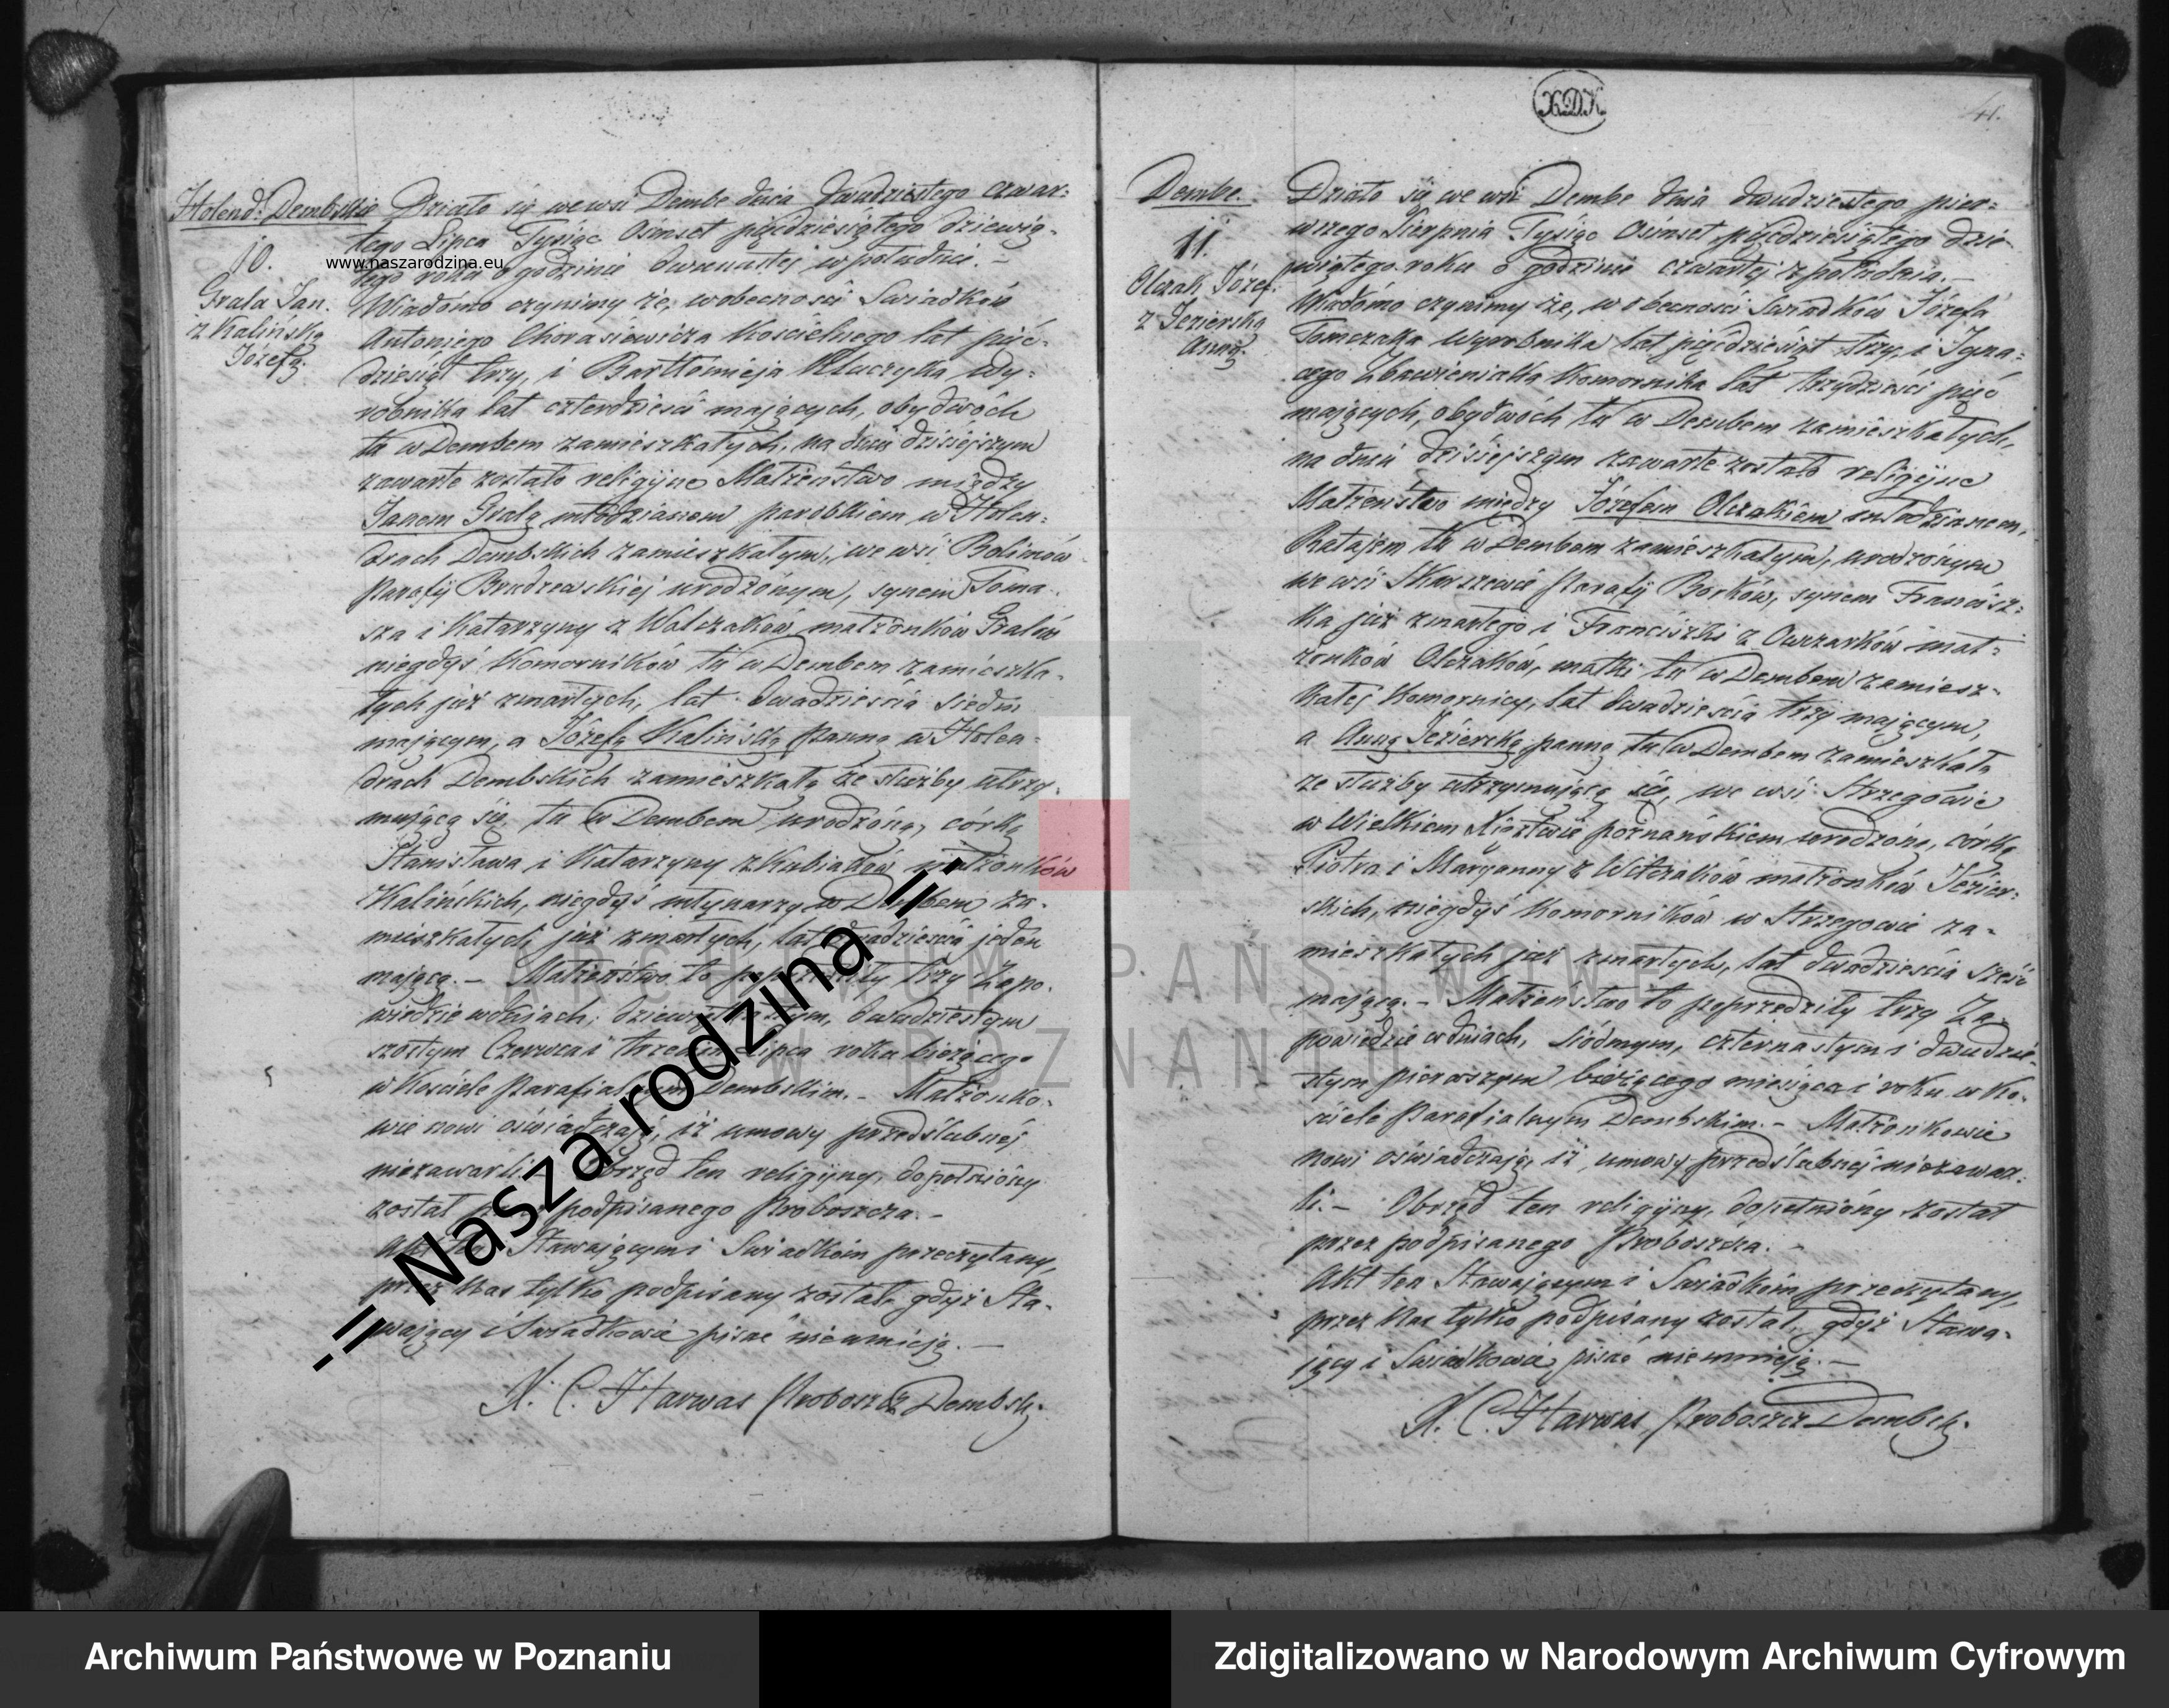 Holend: Dembskie
10.
Grala Jan.
z Kalińską
Józefą.
Działo się we wsi Dembe dnia dwudziestego czwar=
tego Lipca Tysiąc Ośmset pięćdziesiątego dziewią=
tego roku o godzinie dwunastej w południe. –
Wiadomo czynimy że, w obecności Swiadków
Antoniego Chorasiewicza Kościelnego lat pięć=
dziesiąt trzy, i Bartłomieja Kluczyka Wy=
robnika lat czterdzieści mających, obydwóch
tu w Dembem zamieszkałych, na dniu dzisiejszym
zawarte zostało religijne Małżeństwo między
Janem Gralą młodzianem parobkiem w Holen=
drach Dembskich zamieszkałym, we wsi Bolimów
Parafij Brudzewskiej urodzonym, synem Toma=
sza i Katarzyny z Walczaków małżonków Gralów
niegdyś Komorników tu w Dembem zamieszka=
łych już zmarłych, lat dwadzieścia siedm
mającym, a Józefą Kalińską panną w Holen=
drach Dembskich zamieszkałą ze służby utrzy=
mującą się, tu w Dembem urodzoną, córką
Stanisława i Katarzyny z Kubiaków małżonków
Kalińskich, niegdyś młynarzy w Dembem za=
mieszkałych już zmarłych, lat dwadzieścia jeden
mającą. – Małżeństwo to poprzedziły trzy Zapo=
wiedzie w dniach, dziewiętnastym, dwudziestym
szóstym Czerwca i trzecim Lipca roku bieżącego
w Kościele Parafialnym Dembskim. – Małżonko=
wie nowi oświadczają, iż umowy przedślubnej
niezawarli. – Obrzęd ten religijny, dopełniony
został przez podpisanego Proboszcza. –
Akt ten Stawającym i Swiadkom przeczytany,
przez Nas tylko podpisany został, gdyż Sta=
wający i Swiadkowie pisać nieumieją. –
X. C. Harwas Proboszcz Dembsk:
X.D.K.
41.
Dembe.
11.
Olczak Józef.
z Jezierską
Anną.
Działo się we wsi Dembe dnia dwudziestego pier=
wszego Sierpnia Tysiąc Ośmset pięćdziesiątego dzie=
wiątego roku o godzinie czwartej z południa. –
Wiadomo czynimy że, w obecności Swiadków Józefa
Tomczaka Wyrobnika lat pięćdziesiąt trzy, i Igna=
cego Zbawieniaka Komornika lat trzydzieści pięć
mających, obydwóch tu w Dembem zamieszkałych,
na dniu dzisiejszym zawarte zostało religijne
Małżeństwo między Józefem Olczakiem młodzianem,
Ratajem tu w Dembem zamieszkałym, urodzonym
we wsi Skarszewie Parafij Borków, synem Francisz=
ka już zmarłego i Franciszki z Owczarków mał=
żonków Olczaków, matki tu w Dembem zamiesz=
kałej Komornicy, lat dwadzieścia trzy mającym,
a Anną Jezierską panną tu w Dembem zamieszkałą
ze służby utrzymującą się, we wsi Strzegowie
w Wielkiem Księztwie poznańskiem urodzoną, córką
Piotra i Maryanny z Witczaków małżonków Jezier=
skich, niegdyś Komorników w Strzegowie za=
mieszkałych już zmarłych, lat dwadzieścia sześć
mającą. – Małżeństwo to poprzedziły trzy Za=
powiedzie w dniach, siódmym, czternastym i dwudzie=
stym pierwszym bieżącego miesiąca i roku w Ko=
ściele Parafialnym Dembskim. – Małżonkowie
nowi oświadczają, iż umowy przedślubnej niezawar=
li. – Obrzęd ten religijny, dopełniony został
przez podpisanego Proboszcza. –
Akt ten Stawającym i Swiadkom przeczytany,
przez Nas tylko podpisany został, gdyż Stawa=
jący i Swiadkowie pisać nieumieją. –
X. C. Harwas, Proboszcz Dembsk:
www.naszarodzina.eu
-= Nasza rodzina =-
ARCHIWUM PAŃSTWOWE
W POZNANIU
Archiwum Państwowe w Poznaniu
Zdigitalizowano w Narodowym Archiwum Cyfrowym